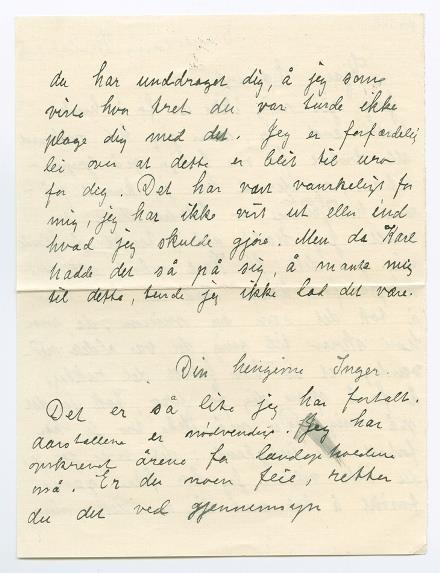 du har unddraget dig, å jeg som
viste hvor tret du var turde ikke
plage dig med det. Jeg er forfærdelig
lei over at dette er blit til uro
for dig. Det har vært vanskeligt for
mig, jeg har ikke vist ut eller ind
hvad jeg skulde gjøre. Men da Karl
hadde det så på sig, å mante mig
til dette, turde jeg ikke lad det være.
Din hengivne Inger.
Det er så lite jeg har fortalt.
aarstallene er nødvendige. Jeg har
opskrevet årene for
må. Er du noen feil, retter
du det ved gjennemsyn